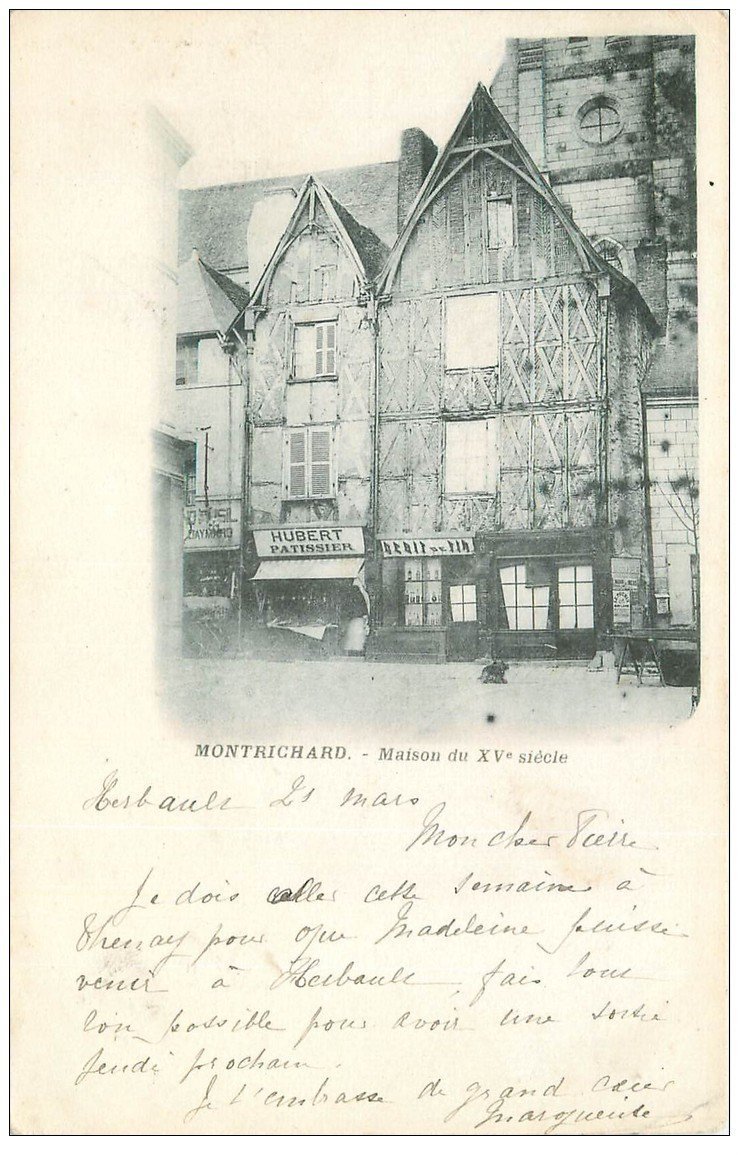 HUBERT
PATISSIER
DEBIT DE VIN
MONTRICHARD. - Maison du XVe siècle
Herbault 21 mars
Mon cher Pierre
Je dois aller cette semaine à
Thenay pour que Madeleine puisse
venir à Herbault, fais tout
ton possible pour avoir une sortie
jeudi prochain.
Je t'embrasse de grand cœur
Marguerite